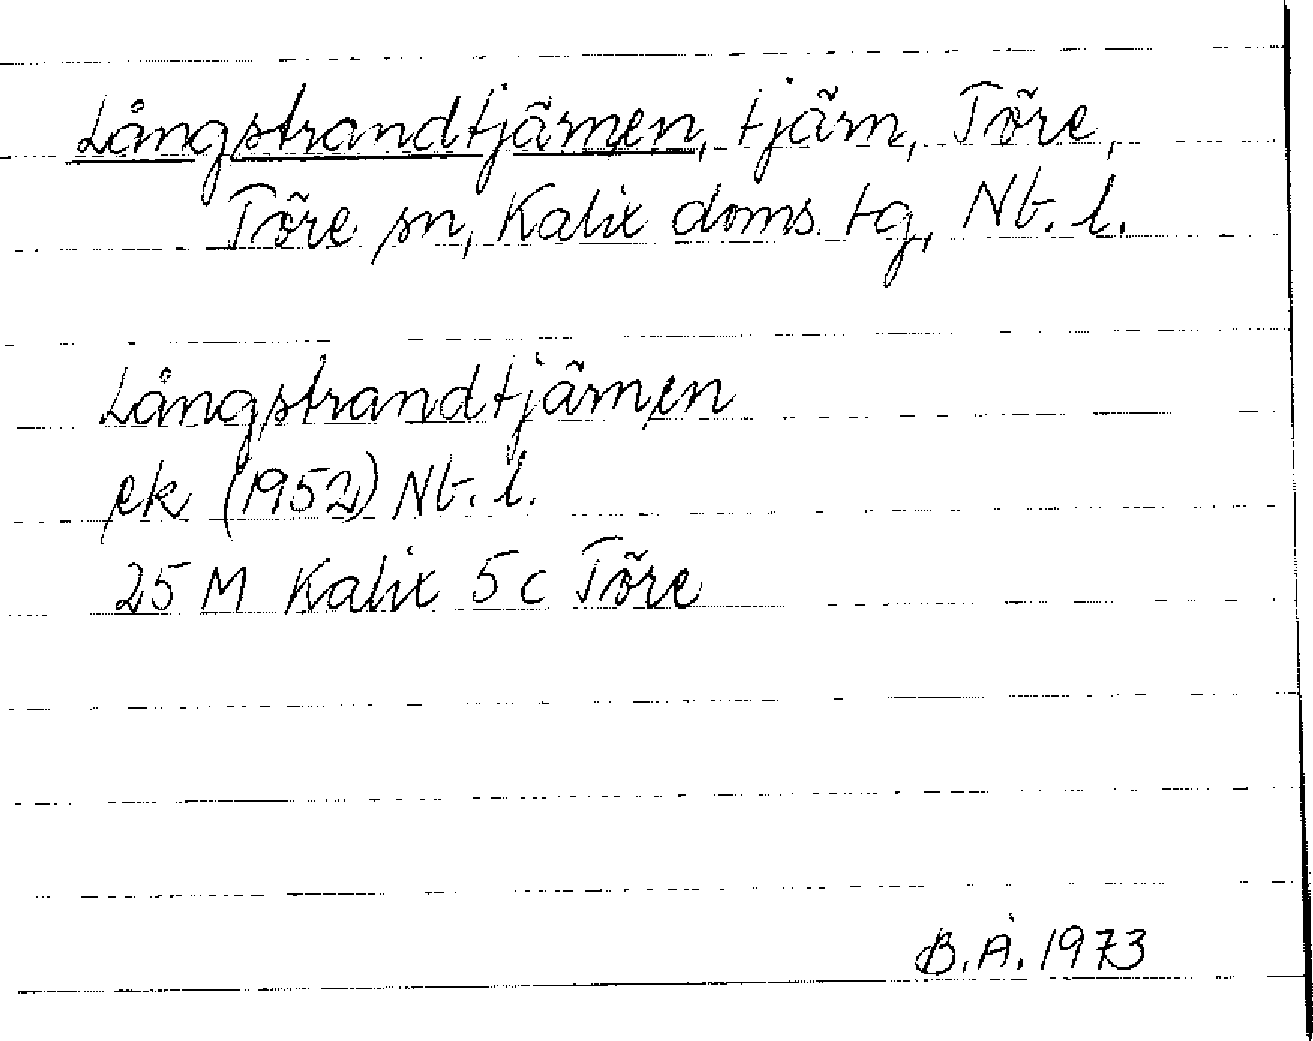 Långstrandtjärnen, tjärn, Töre,
Töre sn, Kalix doms. tg, Nb. l.
Långstrandtjärnen
ek (1952) Nb. l.
25 M Kalix 5 c Töre
B.Å. 1973